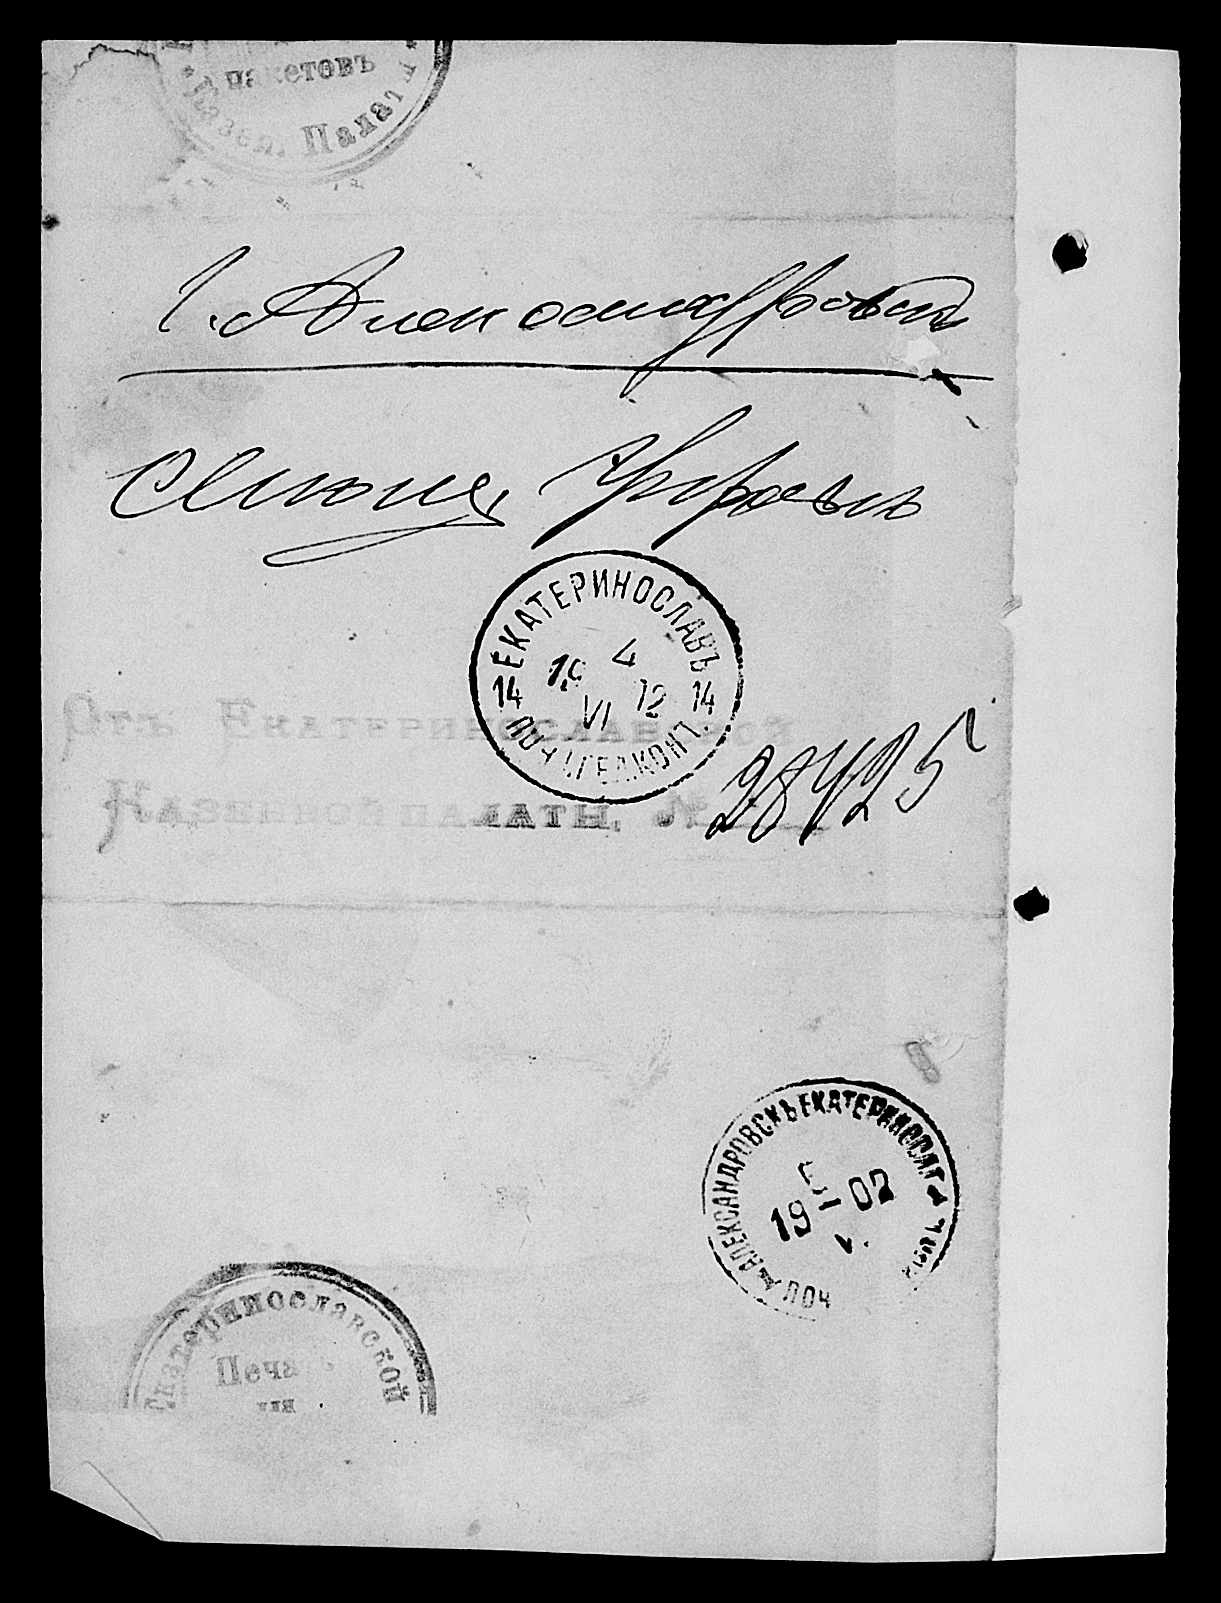 пакетовъ
Казен. Палат
г. Александровскъ
Управѣ
ЕКАТЕРИНОСЛАВЪ
4
19 12
VI
14 14
ПОЧ. ТЕЛ. КОН.
Отъ Екатеринославской
Казенной палаты, №
28425
АЛЕКСАНДРОВСКЪ ЕКАТЕРИНОСЛ. Г.
5
19 02
ПОЧ
Екатеринославской
Печать
для